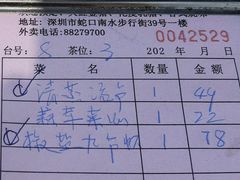 地址:深圳市蛇口南水步行街39号一楼
外卖电话:88279700
0042529
台号: 8 茶位: 3 202 年 月
菜名 数量 金额
清蒸 1 49
蒜茸菜心 1 22
椒盐九节虾 1 78